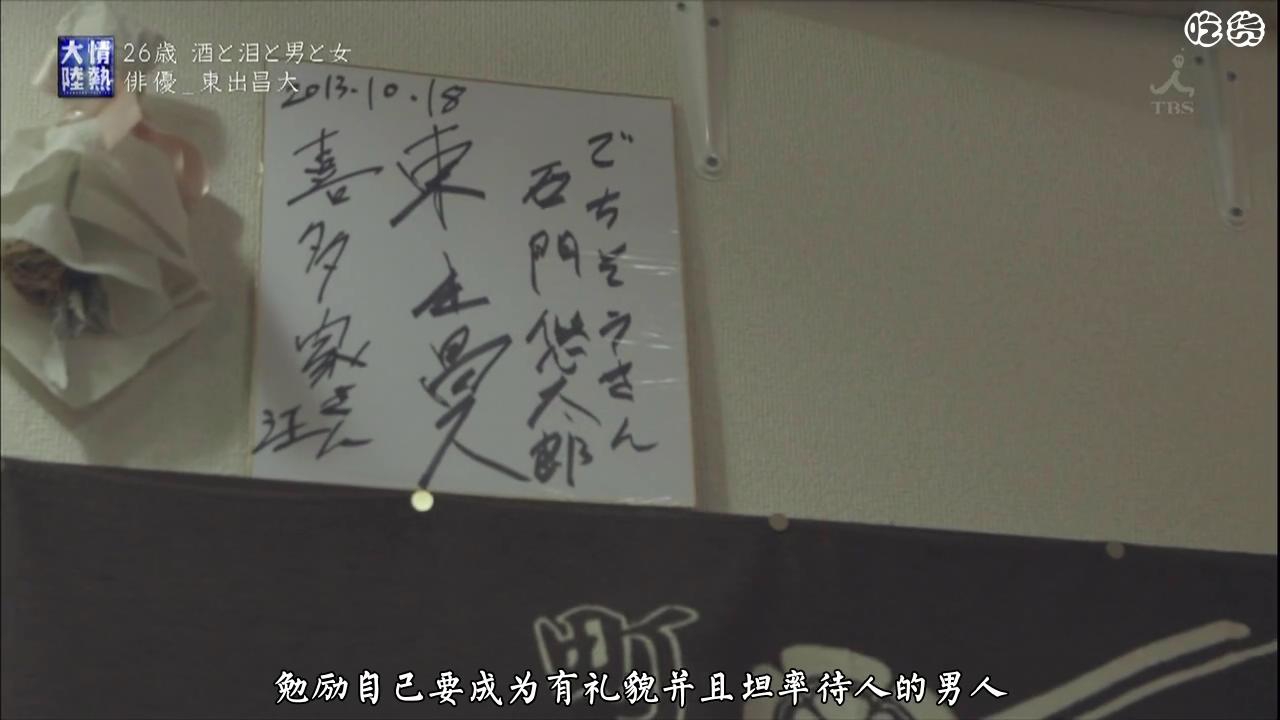 情熱
大陸
26歳 酒と泪と男と女
俳優_東出昌大
吃货
TBS
2013.10.18
ごちそうさん
西門悠太郎
東出昌大
喜多家さん江
町
勉励自己要成为有礼貌并且坦率待人的男人